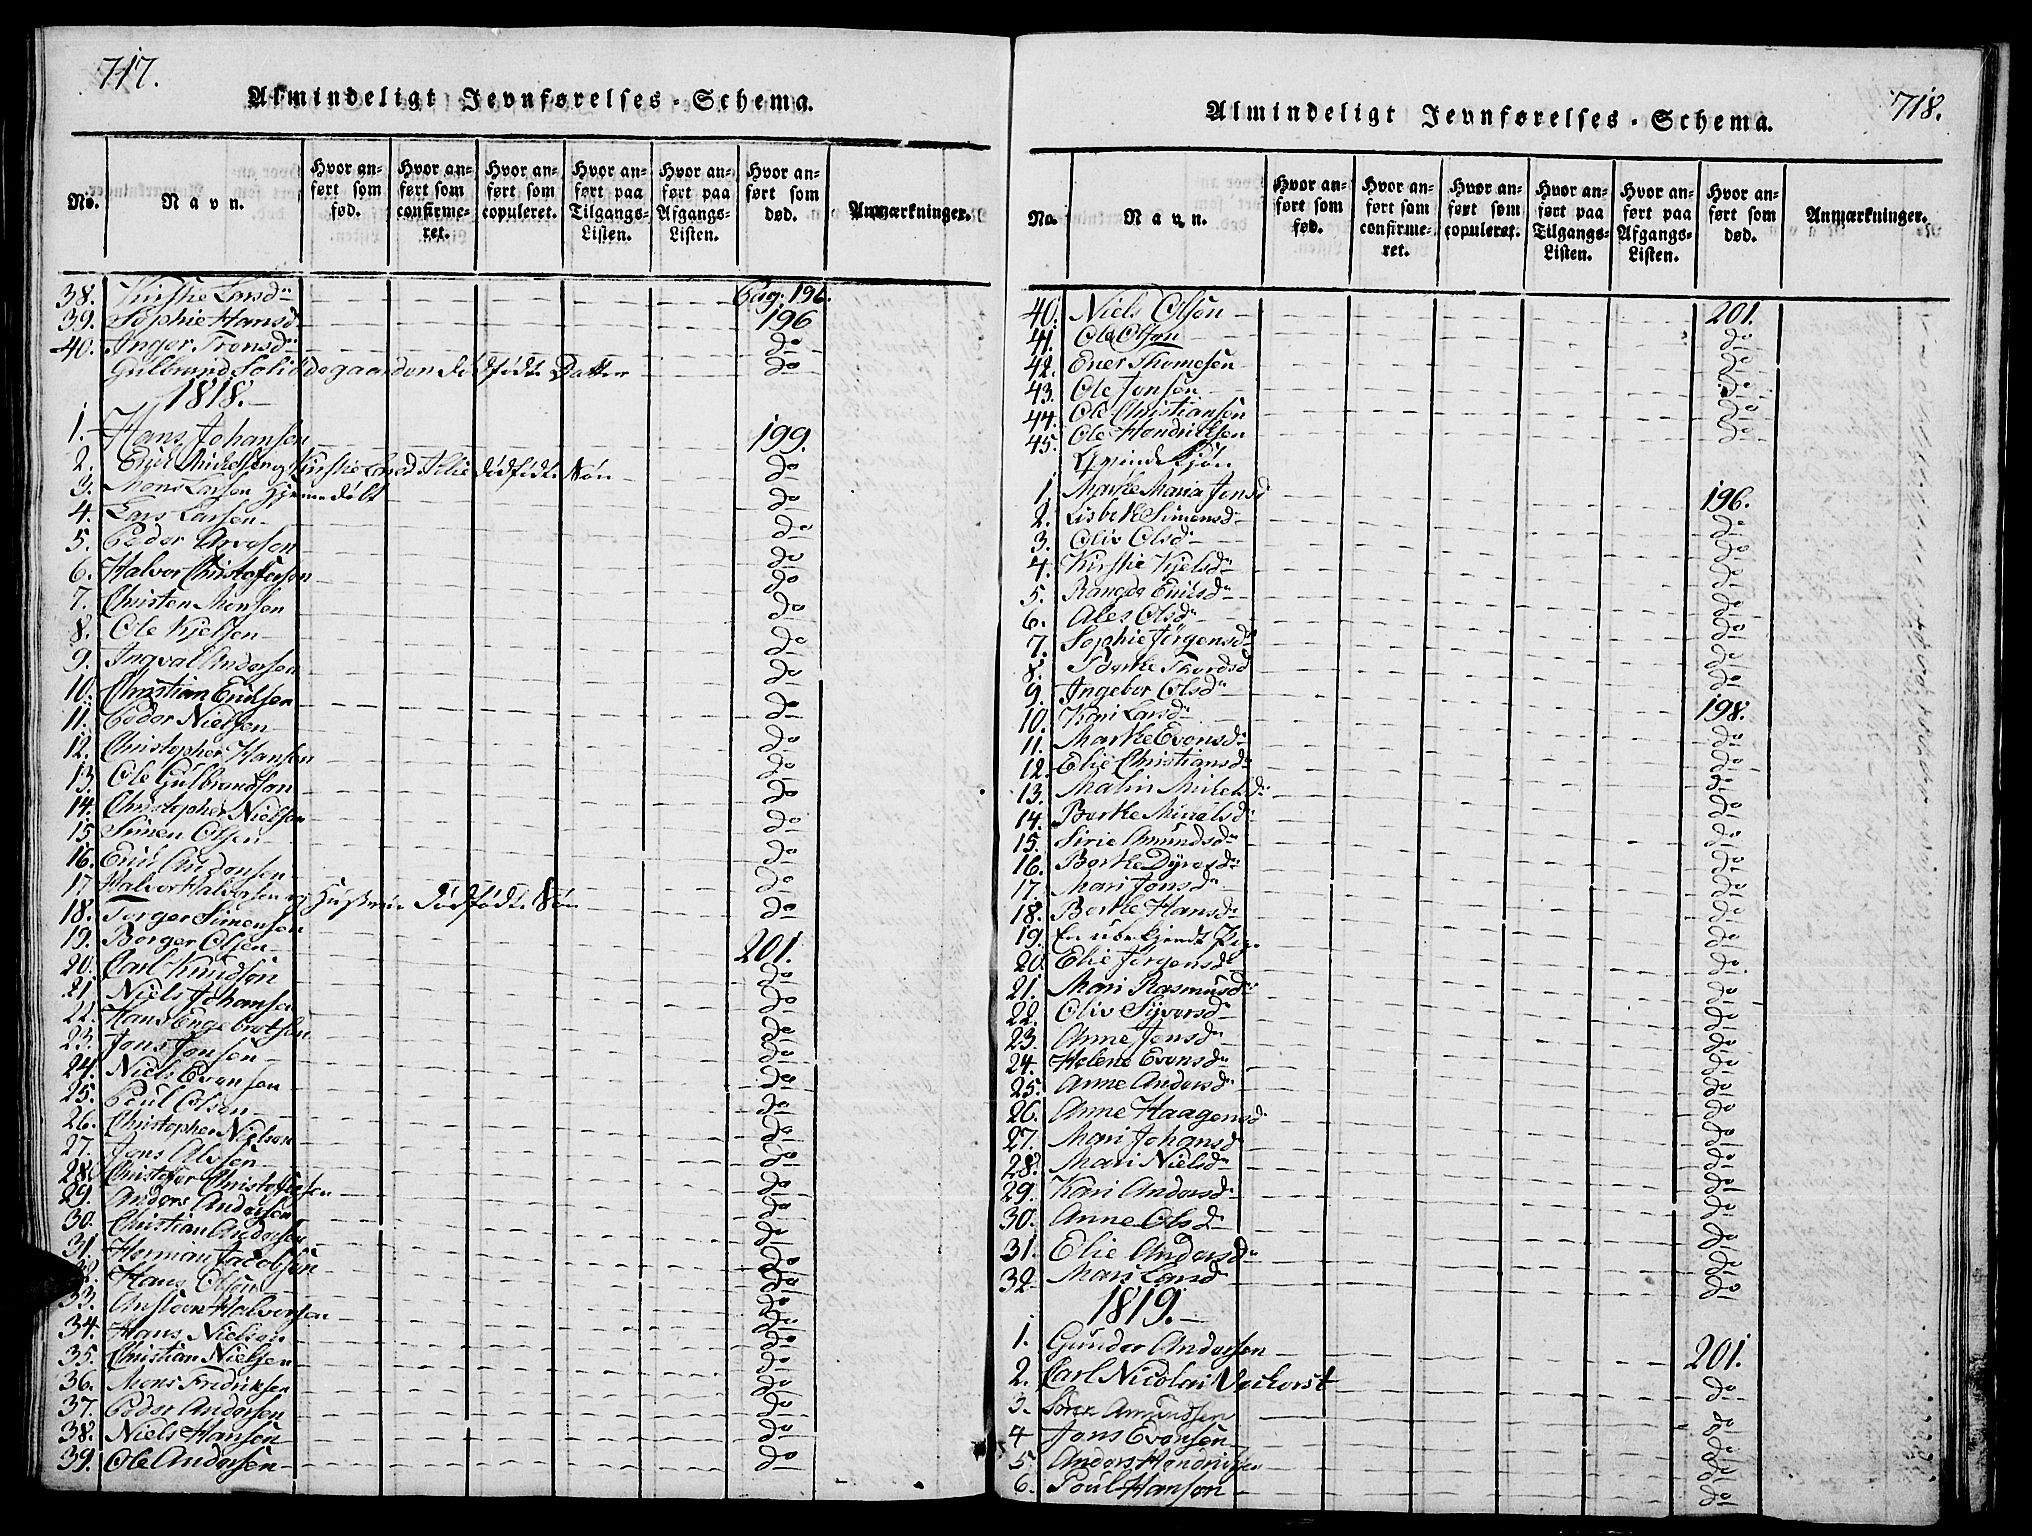 717.
Almindeligt Jevnførelses-Schema.
No.
Navn.
Hvor anført som fød.
Hvor anført som confirmeret.
Hvor anført som copuleret.
Hvor anført paa Tilgangs-Listen.
Hvor anført paa Afgangs-Listen.
Hvor anført som død.
Anmærkninger.
38. Kirstie Larsdr Pag: 196.
39. Sophie Hansd 196
40. Inger Tronsdr do
Gulbrand dødfødte Datter do
1818.
1. Hans Johansen 199.
2. Erich Michelsen og Kirstie dødfødte Søn do
3. Mons Larsen hjemmedøbt do
4. Lars Larsen do
5. Peder Arvesen do
6. Halvor Christofersen do
7. Christen Monsen do
8. Ole Kjelsen do
9. Ingval Andersen do
10. Christian Erichsen do
11. Peder Nielsen do
12. Christopher Hansen do
13. Ole Gulbrandsen do
14. Christopher Nielsen do
15. Simen Olsen do
16. Erich Andersen do
17. Halvor Halvorsen og Hustrues dødfødte Søn do
18. Torger Simensen do
19. Borger Olsen 201.
20. Carl Knudsen do
21. Niels Johansen do
22. Hans Engebretsen do
23. Jens Jensen do
24. Niels Evensen do
25. Poul Olsen do
26. Christopher Nielsen do
27. Jens Alvsen do
28. Christofer Christofersen do
29. Anders Andersen do
30. Christian Andersen do
31. Herman Jacobsen do
32. Hans Olsen do
33. Anstein Halvorsen do
34. Hans Nielsen do
35. Christian Nielsen do
36. Mons Fredriksen do
37. Peder Andersen do
38. Niels Hansen do
39. Ole Andersen do
718.
Almindeligt Jevnførelses-Schema.
No.
Navn.
Hvor anført som fød.
Hvor anført som confirmeret.
Hvor anført som copuleret.
Hvor anført paa Tilgangs-Listen.
Hvor anført paa Afgangs-Listen.
Hvor anført som død.
Anmærkninger.
40. Niels Olsen 201.
41. Ole Olsen do
42. Ener Thomesen do
43. Ole Jensen do
44. Ole Christiansen do
45. Ole Hendriksen do
Qvindekjøn
1. Marthe Maria Jensd 196.
2. Lisbeth Simensdr do
3. Oliv Olsdr do
4. Kirstie Kjelsdr do
5. Rangdi Erichsdr do
6. Ales Olsdr do
7. Sophie Jørgensdr do
8. Dorthe Thordsd do
9. Ingebor Olsdr do
10. Kari Larsdr 198.
11. Marthe Evensdr do
12. Elie Christiansdr do
13. Malin Michelsdr do
14. Berthe Michelsdr do
15. Sirie Amundsdr do
16. Berthe Dyresdr do
17. Mari Jensdr do
18. Berthe Hansdr do
19. En ubekjendt Pige do
20. Elie Jørgensdr do
21. Mari Rasmusdr do
22. Oliv Syversdr do
23. Anne Jensdr do
24. Helene Evensdr do
25. Anne Andersdr do
26. Anne Haagensdr do
27. Mari Johansd do
28. Mari Nielsdr do
29. Kari Andersdr do
30. Anne Olsdr do
31. Elie Andersdr do
32 Mari Larsd do
1819.
1. Gunder Andersen 201.
2. Carl Nicolai do
3. Amundsen do
4 Jens Evensen do
5 Anders Hendriksen do
6. Poul Hansen do